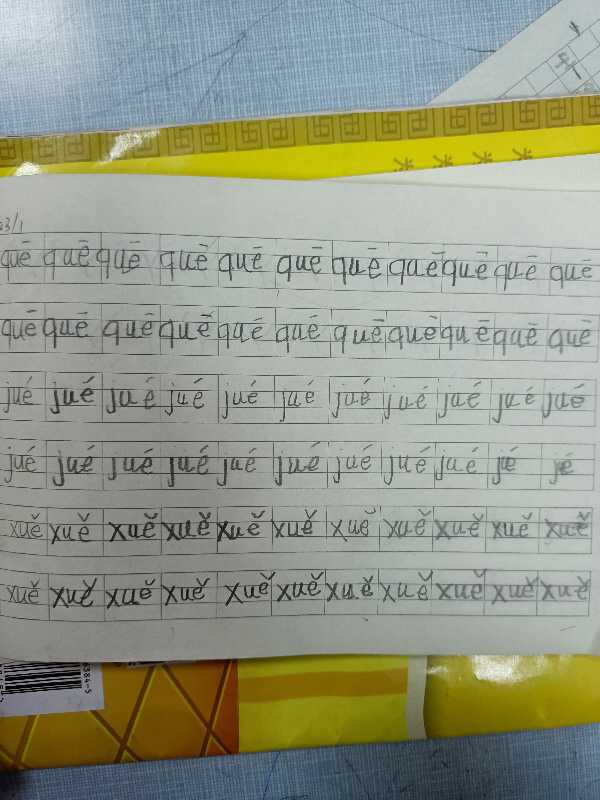 23/1
quē quē quē quē quē quē quē quē quē quē quē
quē quē quē quē quē quē quē quē quē quē quē
jué jué jué jué jué jué jué jué jué jué jué
jué jué jué jué jué jué jué jué jué jué jué
xuě xuě xuě xuě xuě xuě xuě xuě xuě xuě xuě
xuě xuě xuě xuě xuě xuě xuě xuě xuě xuě xuě